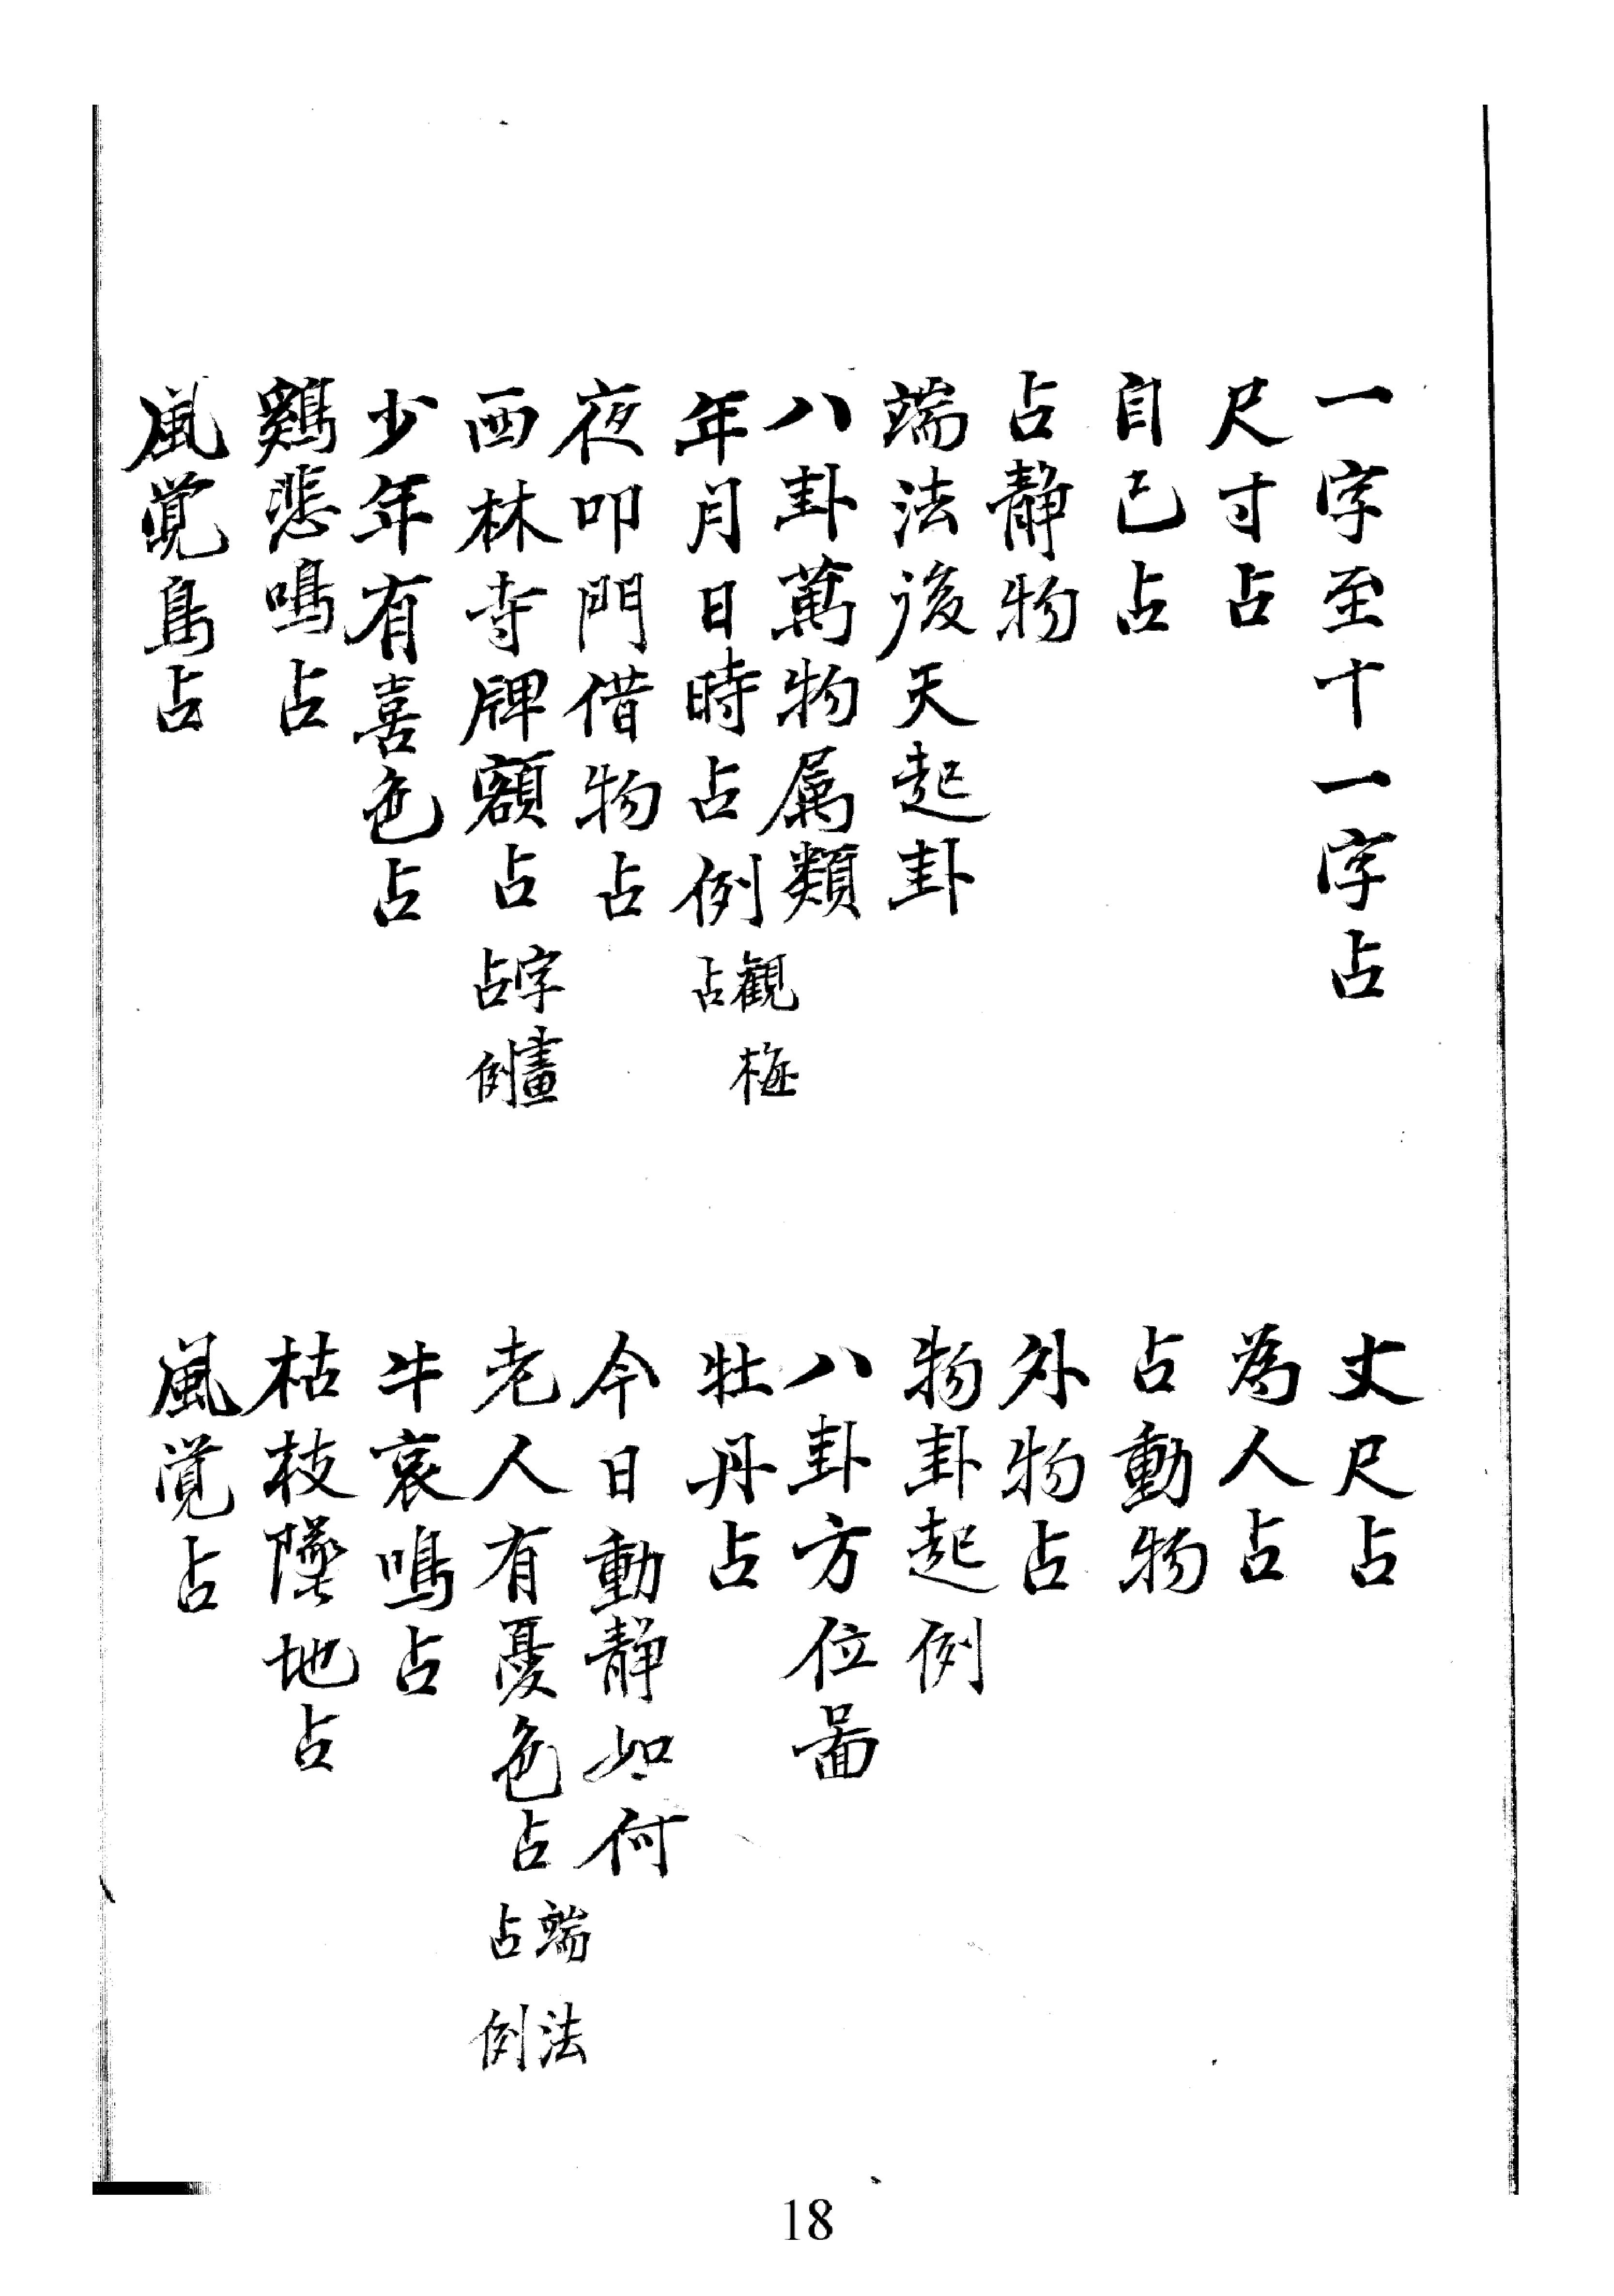 一字至十一字占
丈尺占
尺寸占
為人占
自己占
占動物
占静物
外物占
端法後天起卦
物卦起例
八卦萬物属類
八卦方位啚
年月日時占例 觀梅占
牡丹占
夜叩門借物占
今日動静如何
西林寺牌額占 字畫占例
老人有憂色占 端法占例
少年有喜色占
牛哀鳴占
鷄悲鳴占
枯枝墜地占
風覚鳥占
風覚占
18